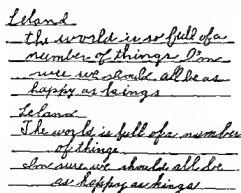 Leland
the world is so full of a
number of things I'm
sure we should all be as
happy as kings
Leland
The world is full of a number
of things
I'm sure we should all be
as happy as kings.